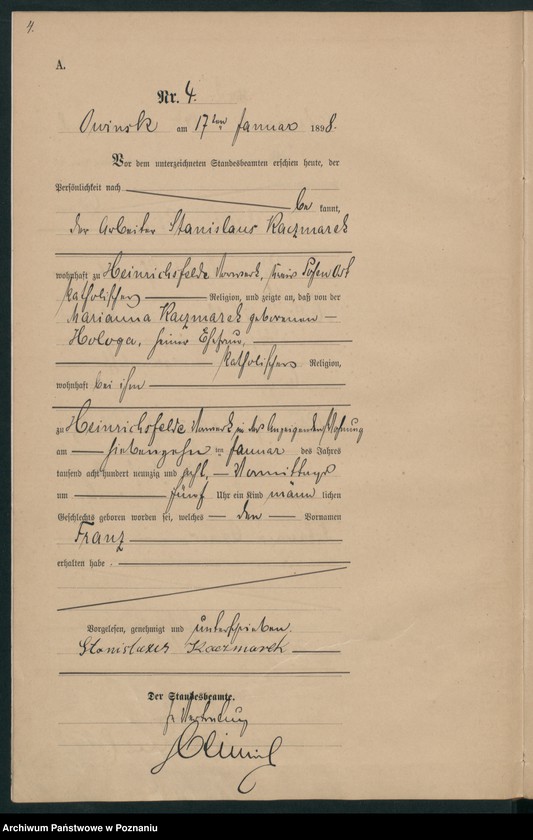 4.
A.
Nr. 4.
Owinsk am 17ten Januar 1898.
Vor dem unterzeichneten Standesbeamten erschien heute, der
Persönlichkeit nach
be kannt,
der Arbeiter Stanislaus Kaczmarek
wohnhaft zu Heinrichsfelde Vorwerk, Kreis Posen Ost
katholischer Religion, und zeigte an, daß von der
Marianna Kaczmarek geborenen
Hologa, seiner Ehefrau,
katholischer Religion,
wohnhaft bei ihm
zu Heinrichsfelde Vorwerk in des Anzeigenden Wohnung
am siebenzehn ten Januar des Jahres
tausend acht hundert neunzig und acht, Vormittags
um fünf Uhr ein Kind männ lichen
Geschlechts geboren worden sei, welches den Vornamen
Franz
erhalten habe.
Vorgelesen, genehmigt und unterschrieben.
Stanislaus Kaczmarek
Der Standesbeamte.
In Vertretung
Archiwum Państwowe w Poznaniu